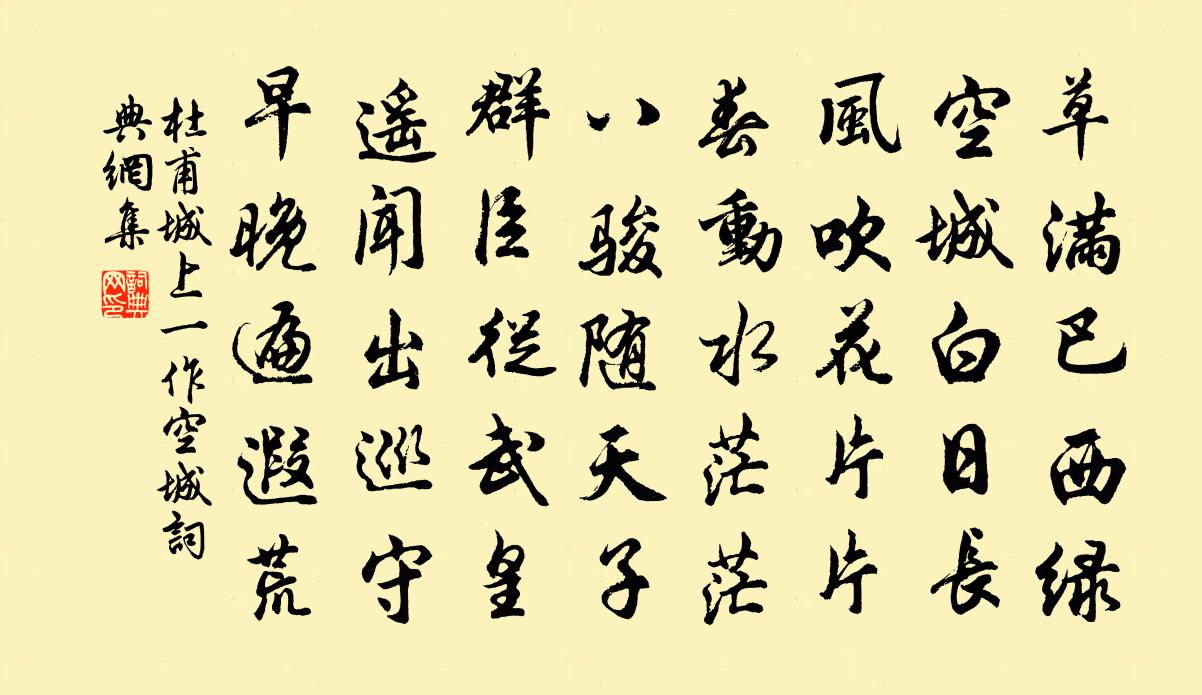 草满巴西绿
空城白日長
風吹花片片
春動水茫茫
八骏随天子
群臣従武皇
遥闻出巡守
早晚遍遐荒
杜甫城上一作空城詞
典網集
詞典网印